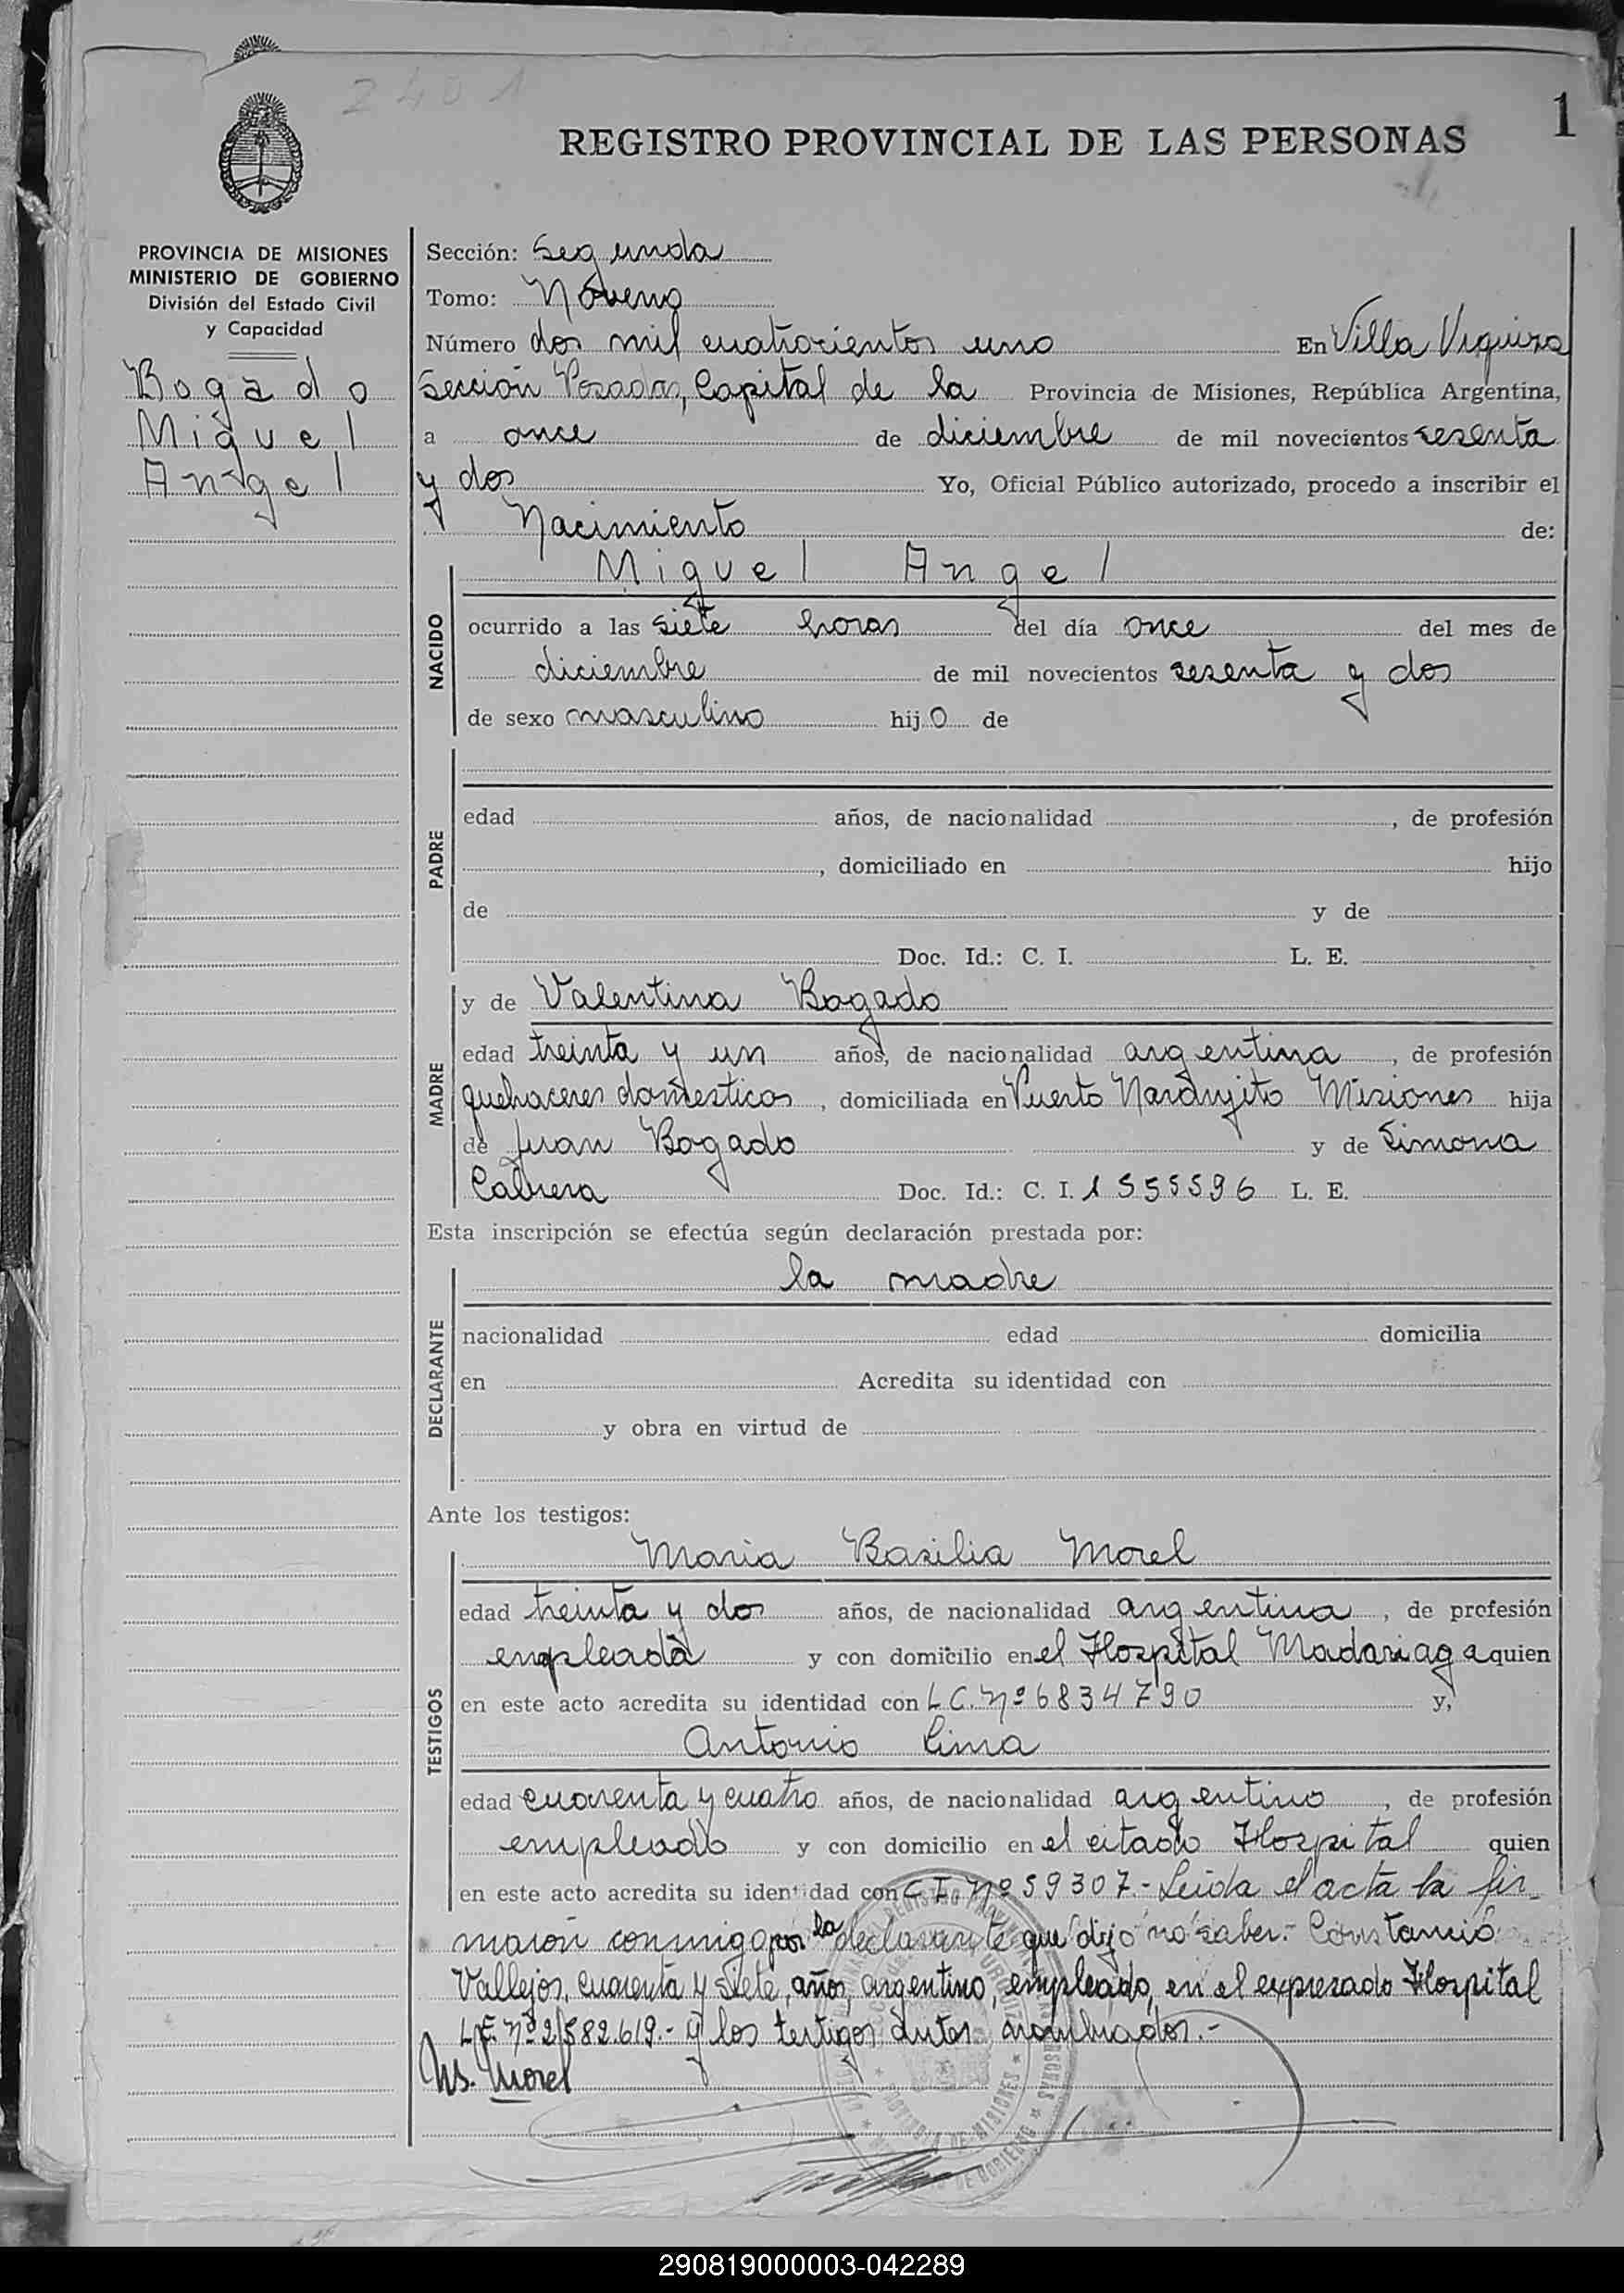 2401
1
REGISTRO PROVINCIAL DE LAS PERSONAS
PROVINCIA DE MISIONES
MINISTERIO DE GOBIERNO
División del Estado Civil
y Capacidad
Bogado
Miguel
Angel
Sección: Segunda
Tomo: Noveno
Número dos mil cuatrocientos uno En Villa Urquiza
Sección Posadas, Capital de la Provincia de Misiones, República Argentina,
a once de diciembre de mil novecientos sesenta
y dos Yo, Oficial Público autorizado, procedo a inscribir el
Nacimiento de:
NACIDO
Miguel Angel
ocurrido a las siete horas del día once del mes de
diciembre de mil novecientos sesenta y dos
de sexo masculino hijo de
PADRE
edad años, de nacionalidad , de profesión
, domiciliado en hijo
de y de
Doc. Id.: C. I. L. E.
MADRE
y de Valentina Bogado
edad treinta y un años, de nacionalidad argentina, de profesión
quehaceres domésticos, domiciliada en Puerto Naranjito Misiones hija
de Juan Bogado y de Simona
Cabrera Doc. Id.: C. I. 1555596 L. E.
Esta inscripción se efectúa según declaración prestada por:
DECLARANTE
la madre
nacionalidad edad domicilia
en Acredita su identidad con
y obra en virtud de
Ante los testigos:
TESTIGOS
Maria Basilia Morel
edad treinta y dos años, de nacionalidad argentina, de profesión
empleada y con domicilio en el Hospital Madariaga quien
en este acto acredita su identidad con L.C. Nº 6834790 y,
Antonio Lima
edad cuarenta y cuatro años, de nacionalidad argentino, de profesión
empleado y con domicilio en el citado Hospital quien
en este acto acredita su identidad con C I Nº 59307.- Leída el acta la fir-
maron conmigo por la declarante que dijo no saber.- Constancio
Vallejos, cuarenta y siete, años, argentino, empleado, en el expresado Hospital
L.E. Nº 2.582.619.- y los testigos antes nombrados.-
Ms. Morel
290819000003-042289